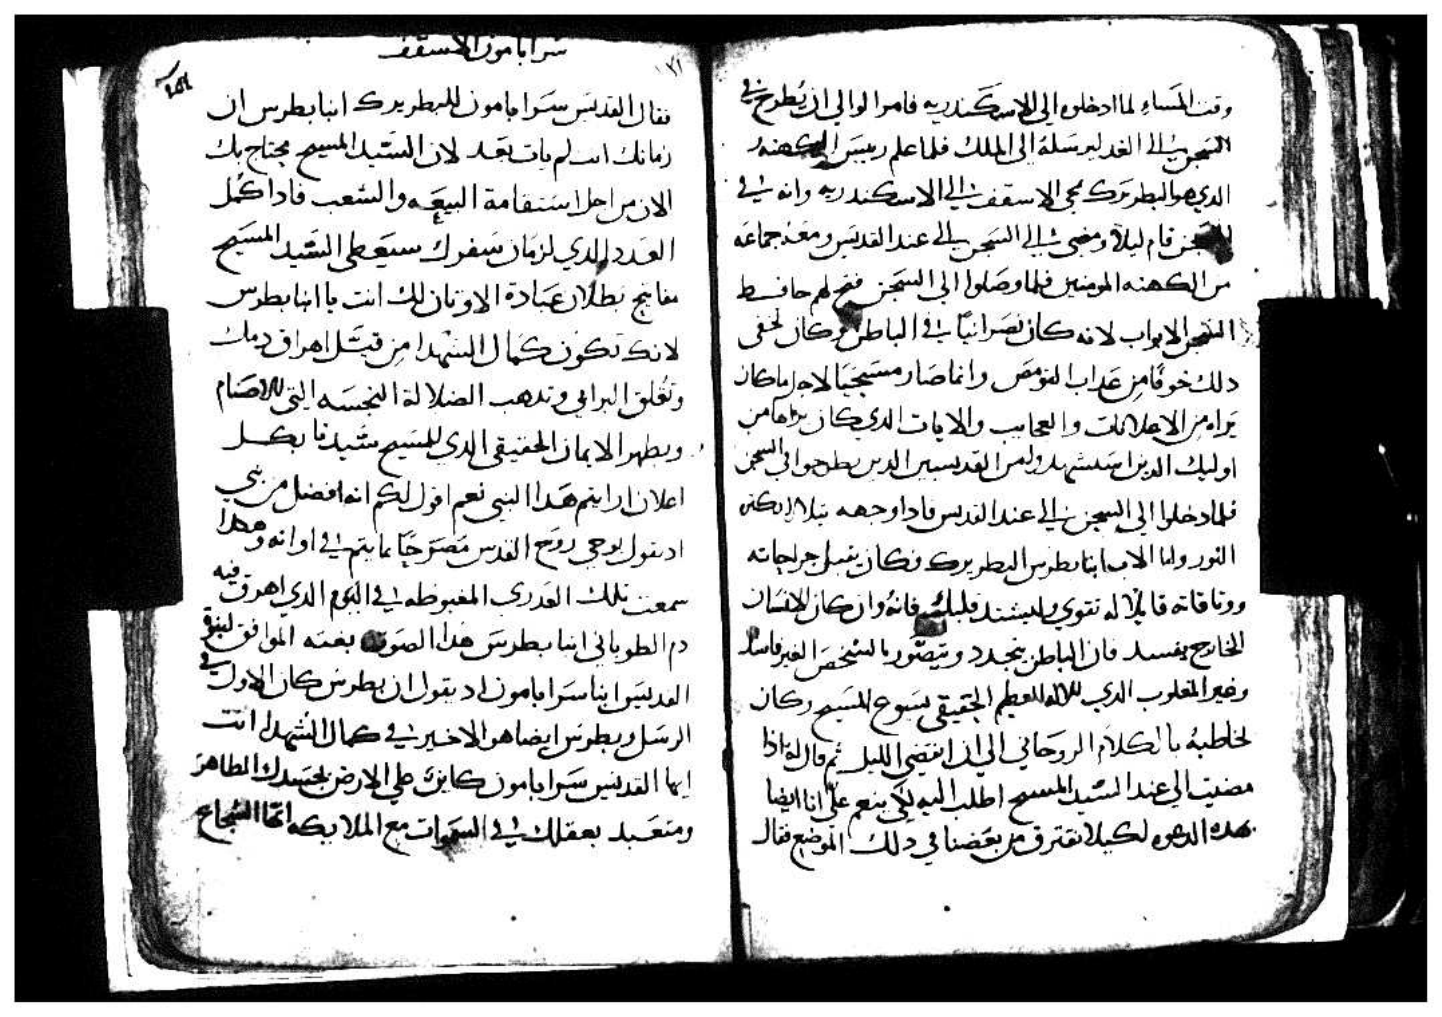 وقت المساء لما ادخلوه الى الاسكندريه فامر الوالي ان يُطرح في
السجن الى الغد ليرسله الى الملك فلما علم رييس الكهنه
الدي هو البطريرك بمجي الاسقف الى الاسكندريه وانه في
السجن قام ليلاً ومضى الى السجن الى عند القديس ومعه جماعه
من الكهنه المومنين فلما وصلوا الى السجن فتح لهم حافظ
السجن الابواب لانه كان نصرانيًا في الباطن وكان يخفى
دلك خوفًا من عداب القومص وانما صار مسيحيًا لاجل ما كان
يراه من الاعلانات والعجايب والايات الدي كان يراها من
اوليك الدين استشهدوا من القديسين الدين يطرحوا في السجن
فلما دخلوا الى السجن الى عند القديس فادا وجهه يتلالا بكثره
النور واما الاب انبا بطرس البطريرك فكان يقبل جراحاته
ووثاقاته قايلاً له تقوي وليشتد قلبك فانه وان كان الانسان
الخارج يفسد فان الباطن يتجدد ويتصور بالشخص الغير فاسد
وغير المغلوب الدي للاله العظيم الحقيقي يسوع المسيح وكان
يخاطبه بالكلام الروحاني الى ان انقضى الليل ثم قال له ادا
مضيت الى عند السيد المسيح اطلب اليه لكي ينعم عليّ انا ايضا
بهده الدعوه لكيلا نفترق من بعضنا في دلك الموضع فقال
سرابامون الاسقف
١٣١
فقال القديس سرابامون للبطريرك انبا بطرس ان
زمانك انت لم يات بعد لان السيد المسيح محتاج بك
الان من اجل استقامة البيعه والشعب فادا كمل
العدد الدي لزمان سفرك سيعطى السيد المسيح
مفاتيح بطلان عبادة الاوثان لك انت يا انبا بطرس
لانك تكون كمال الشهدا من قبل اهراق دمك
وتغلق البرابي وتدهب الضلالة النجسه التي للاصنام
ويظهر الايمان الحقيقي الدي للمسيح سيدنا بكل
اعلان ارايتم هدا النبي نعم اقول لكم انه افضل من نبي
اد يقول بوحي روح القدس مصرحًا بما يتم في اوانه وهدا
سمعت تلك العدرى المغبوطه في اليوم الدي اهرق فيه
دم الطوباني انبا بطرس هدا الصوت بعينه الموافق لنبوة
القديس انبا سرابامون اد يقول ان بطرس كان الاول في
الرسل وبطرس ايضا هو الاخير في كمال الشهدا انت
ايها القديس سرابامون كاين على الارض بجسدك الطاهر
ومتعبد بعقلك في السموات مع الملايكه ايها الشجاع